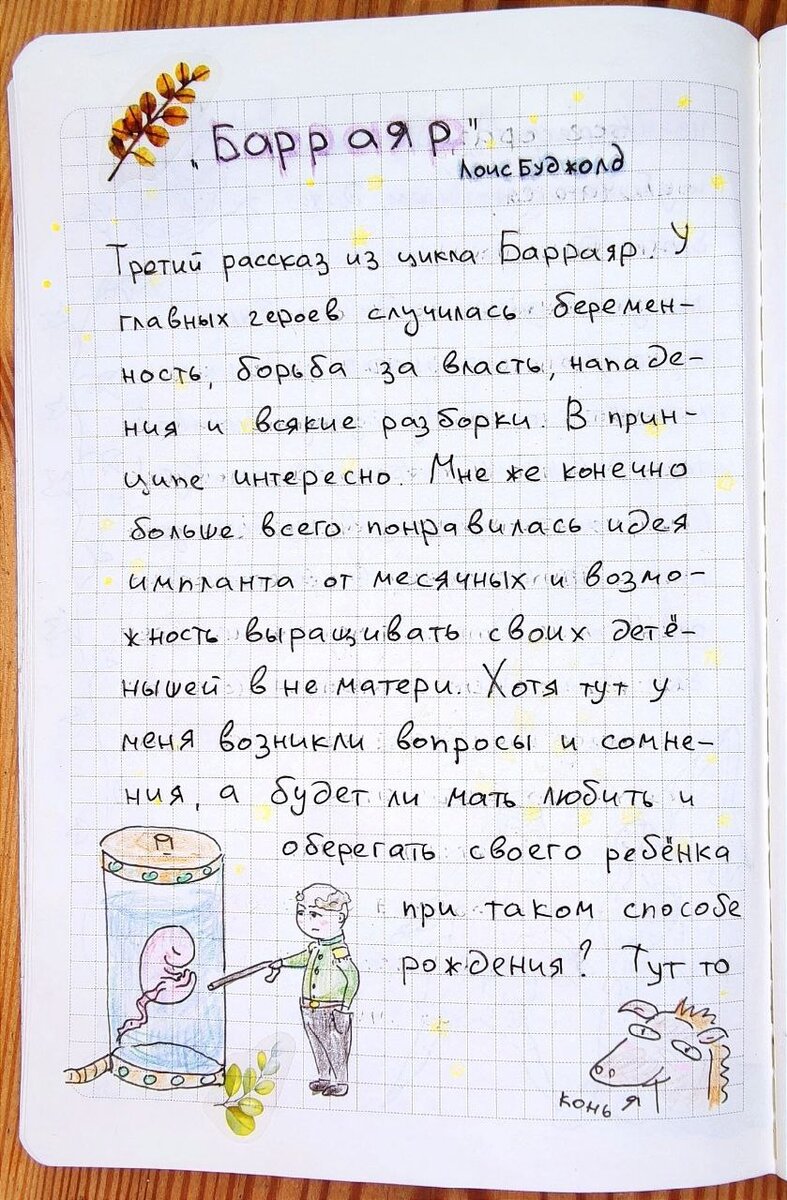 „Барраяр"
Лоис Буджолд
Третий рассказ из цикла Барраяр. У
главных героев случилась беремен-
ность, борьба за власть, нападе-
ния и всякие разборки. В прин-
ципе интересно. Мне же конечно
больше всего понравилась идея
импланта от месячных и возмо-
жность выращивать своих детё-
нышей вне матери. Хотя тут у
меня возникли вопросы и сомне-
ния, а будет ли мать любить и
оберегать своего ребёнка
при таком способе
рождения? Тут то
конь я